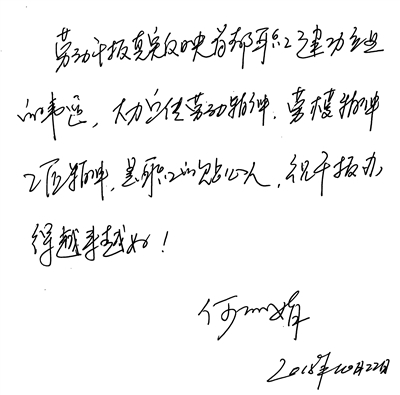 劳动午报真实反映首都职工建功立业
的事迹，大力宣传劳动精神、劳模精神
工匠精神，是职工的贴心人，祝午报办
得越来越好！
何
2018年10月22日